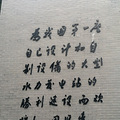 为我国第一座
自己设计和自
制设备的大型
水力发电站的
胜利建设而欢